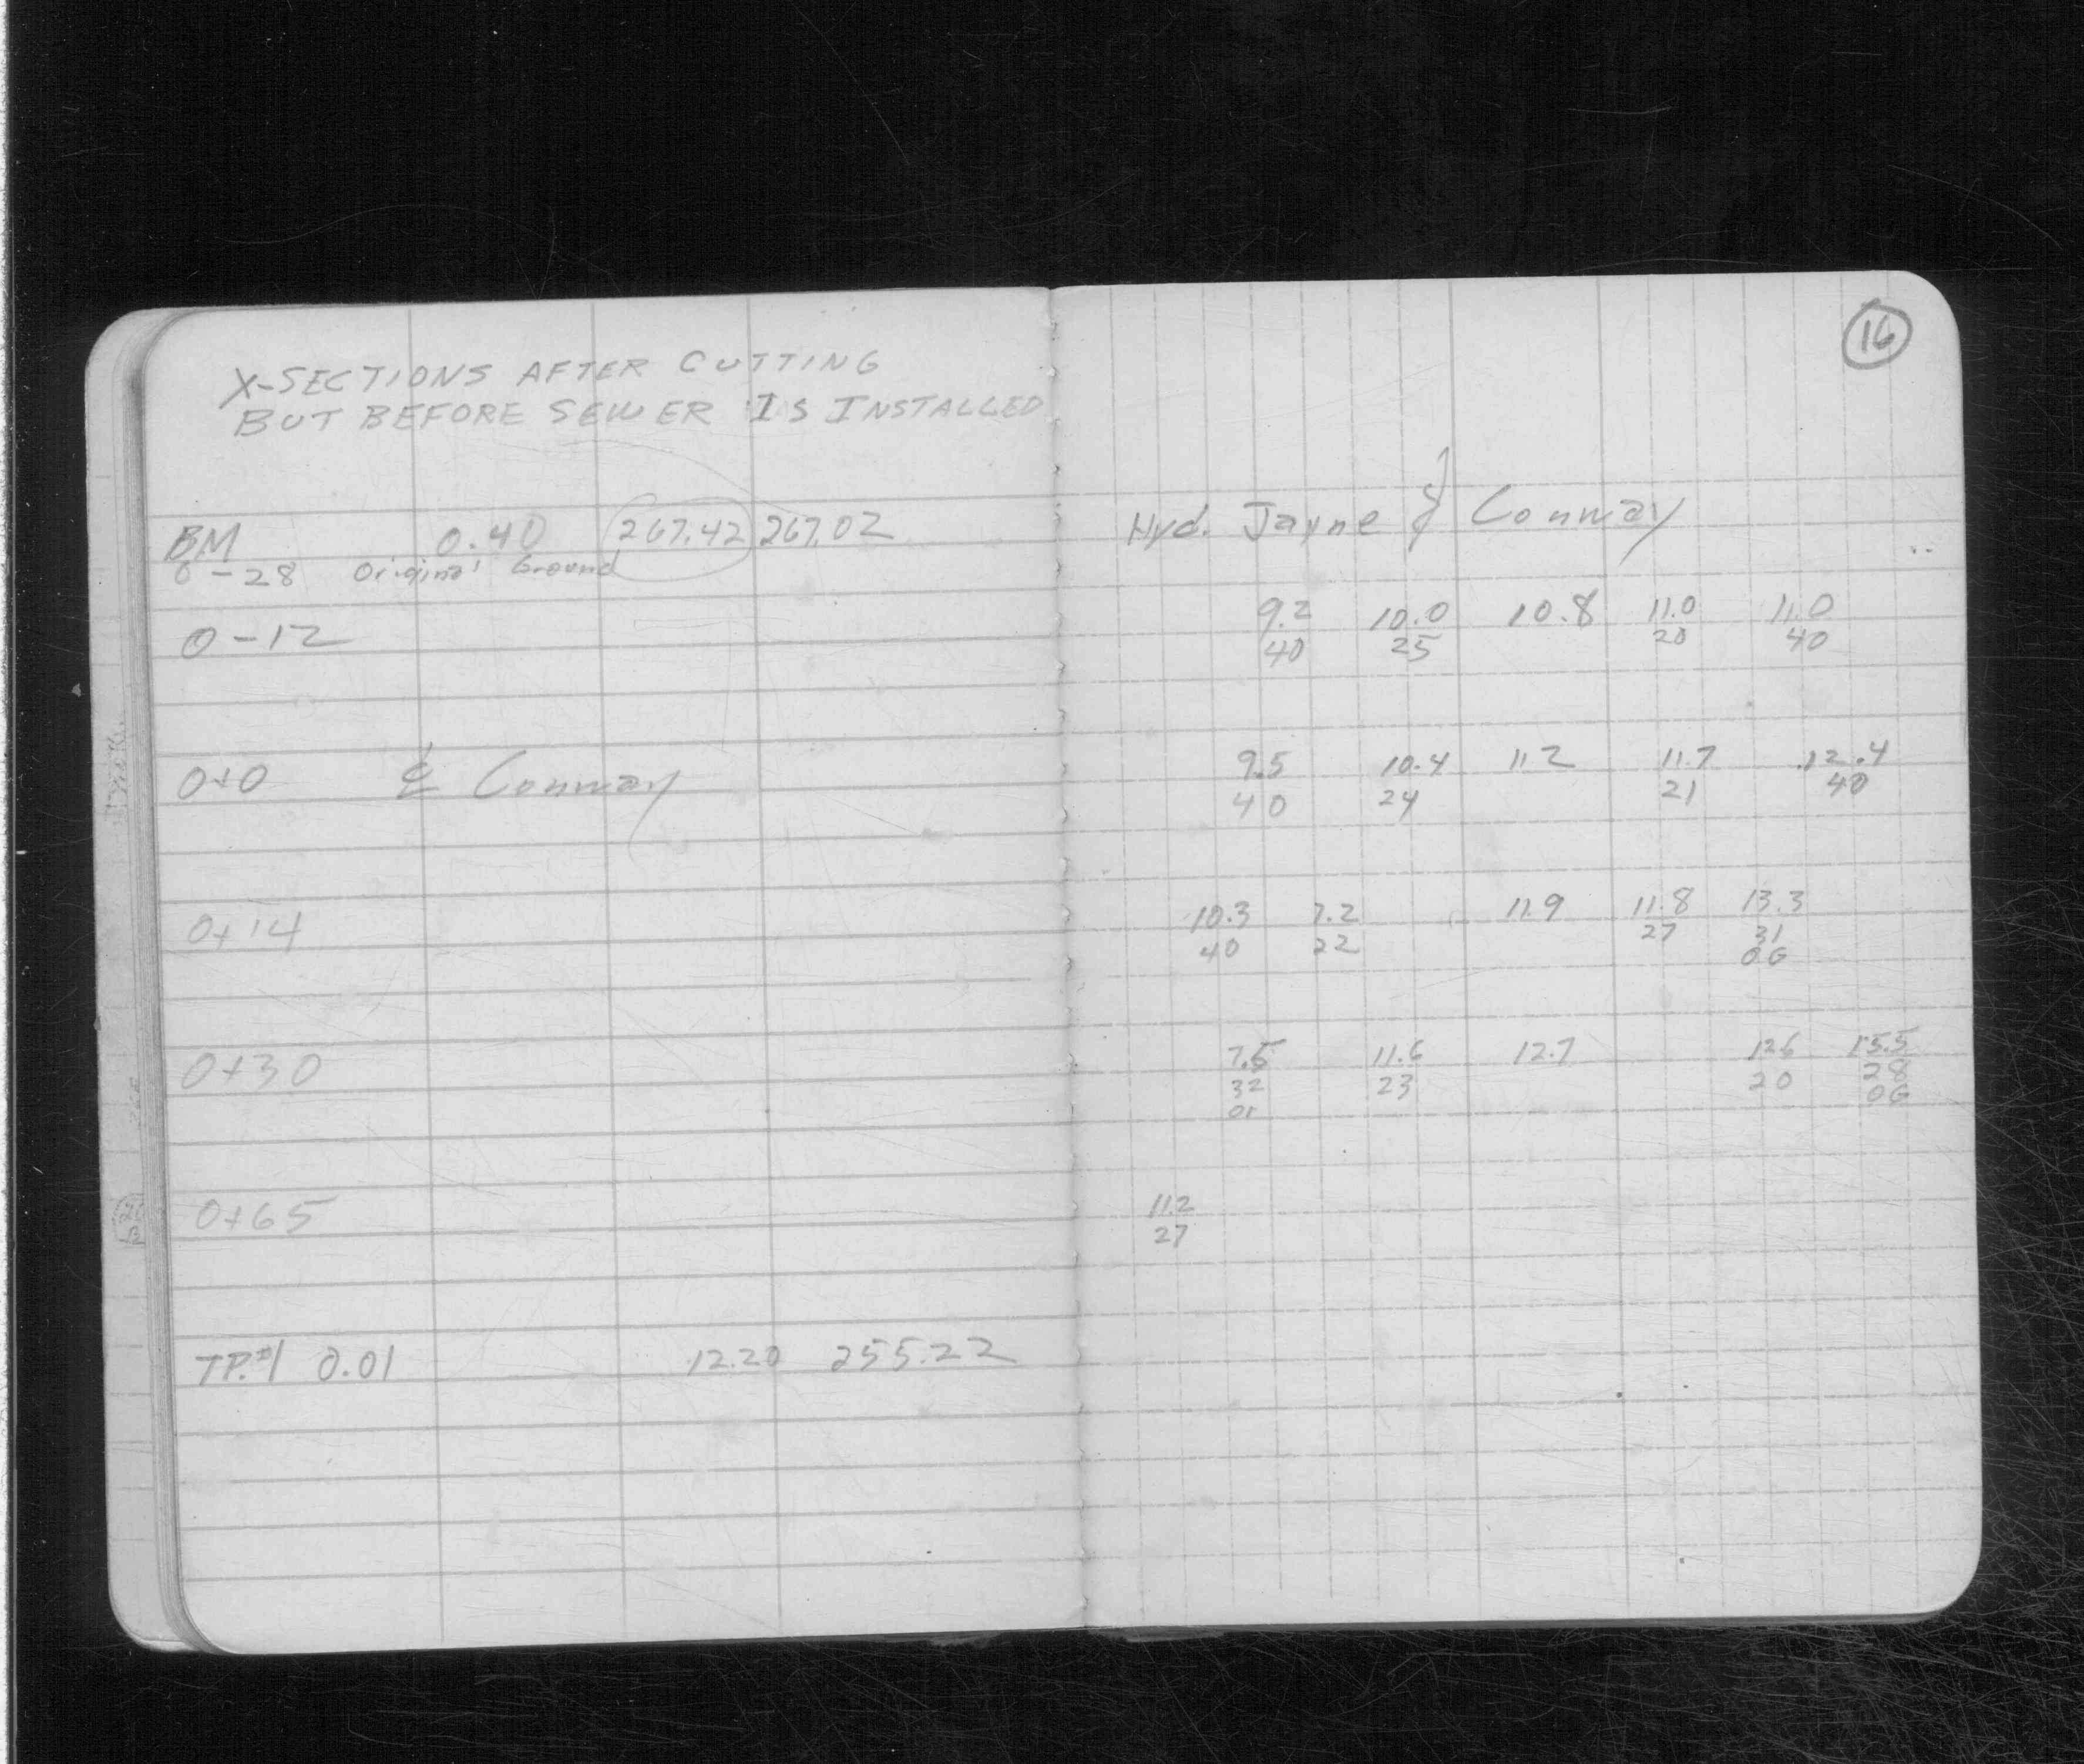 16
X-SECTIONS AFTER CUTTING
BUT BEFORE SEWER IS INSTALLED
BM 0.40 267.42 267.02 Hyd. Jayne & Conway
0-28 Original Ground
0-12 9.2 10.0 10.8 11.0 11.0
40 25 20 40
0+0 ℄ Conway 9.5 10.4 11.2 11.7 12.4
40 24 21 40
0+14 10.3 7.2 11.9 11.8 13.3
40 22 27 31
OG
0+30 7.5 11.6 12.7 12.6 15.5
32 23 20 28
OG
0+65 11.2
27
TP.#1 0.01 12.20 255.22